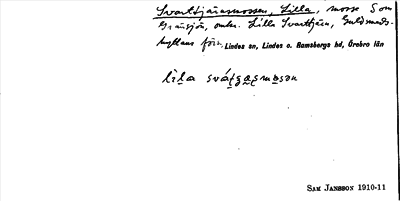 Svarttjärnsmossen, Lilla, mosse S om
Gränsjön, omkr. Lilla Svarttjärn, Guldsmeds-
hyttans förs. Lindes sn, Lindes o. Ramsbergs hd, Örebro län
SAM JANSSON 1910-11